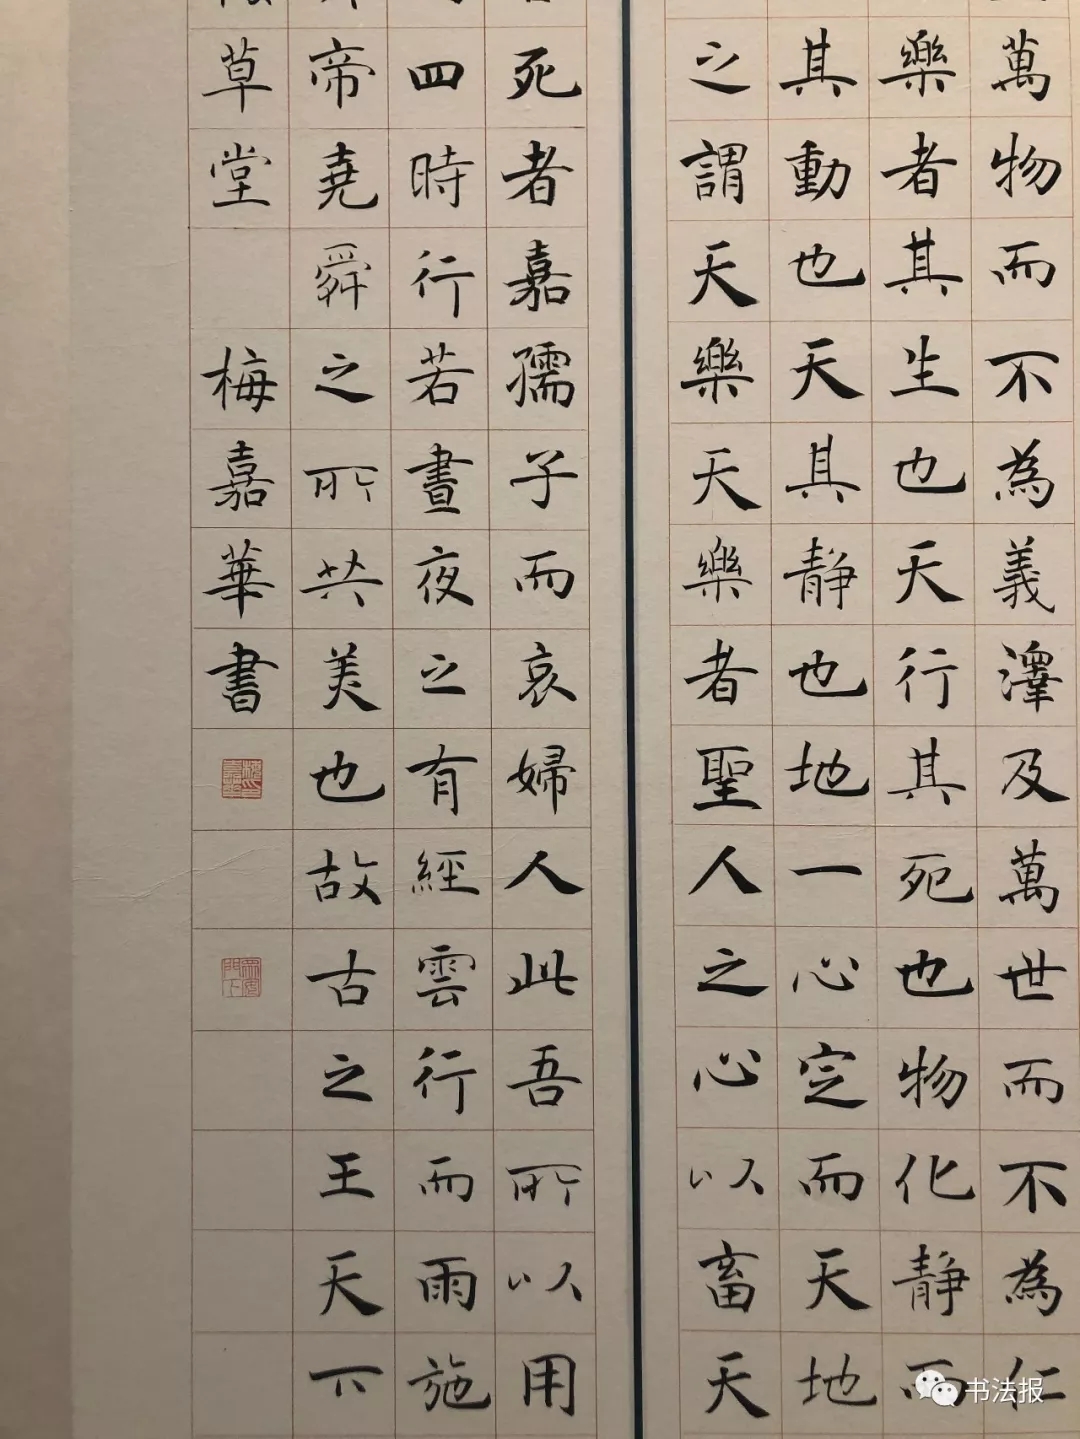 萬物而不為義澤及萬世而不為仁
樂者其生也天行其死也物化靜而
其動也天其靜也地一心定而天地
之謂天樂天樂者聖人之心以畜天
死者嘉孺子而哀婦人此吾所以用
四時行若晝夜之有經雲行而雨施
帝堯舜之所共美也故古之王天下
草堂 梅嘉華書
书法报